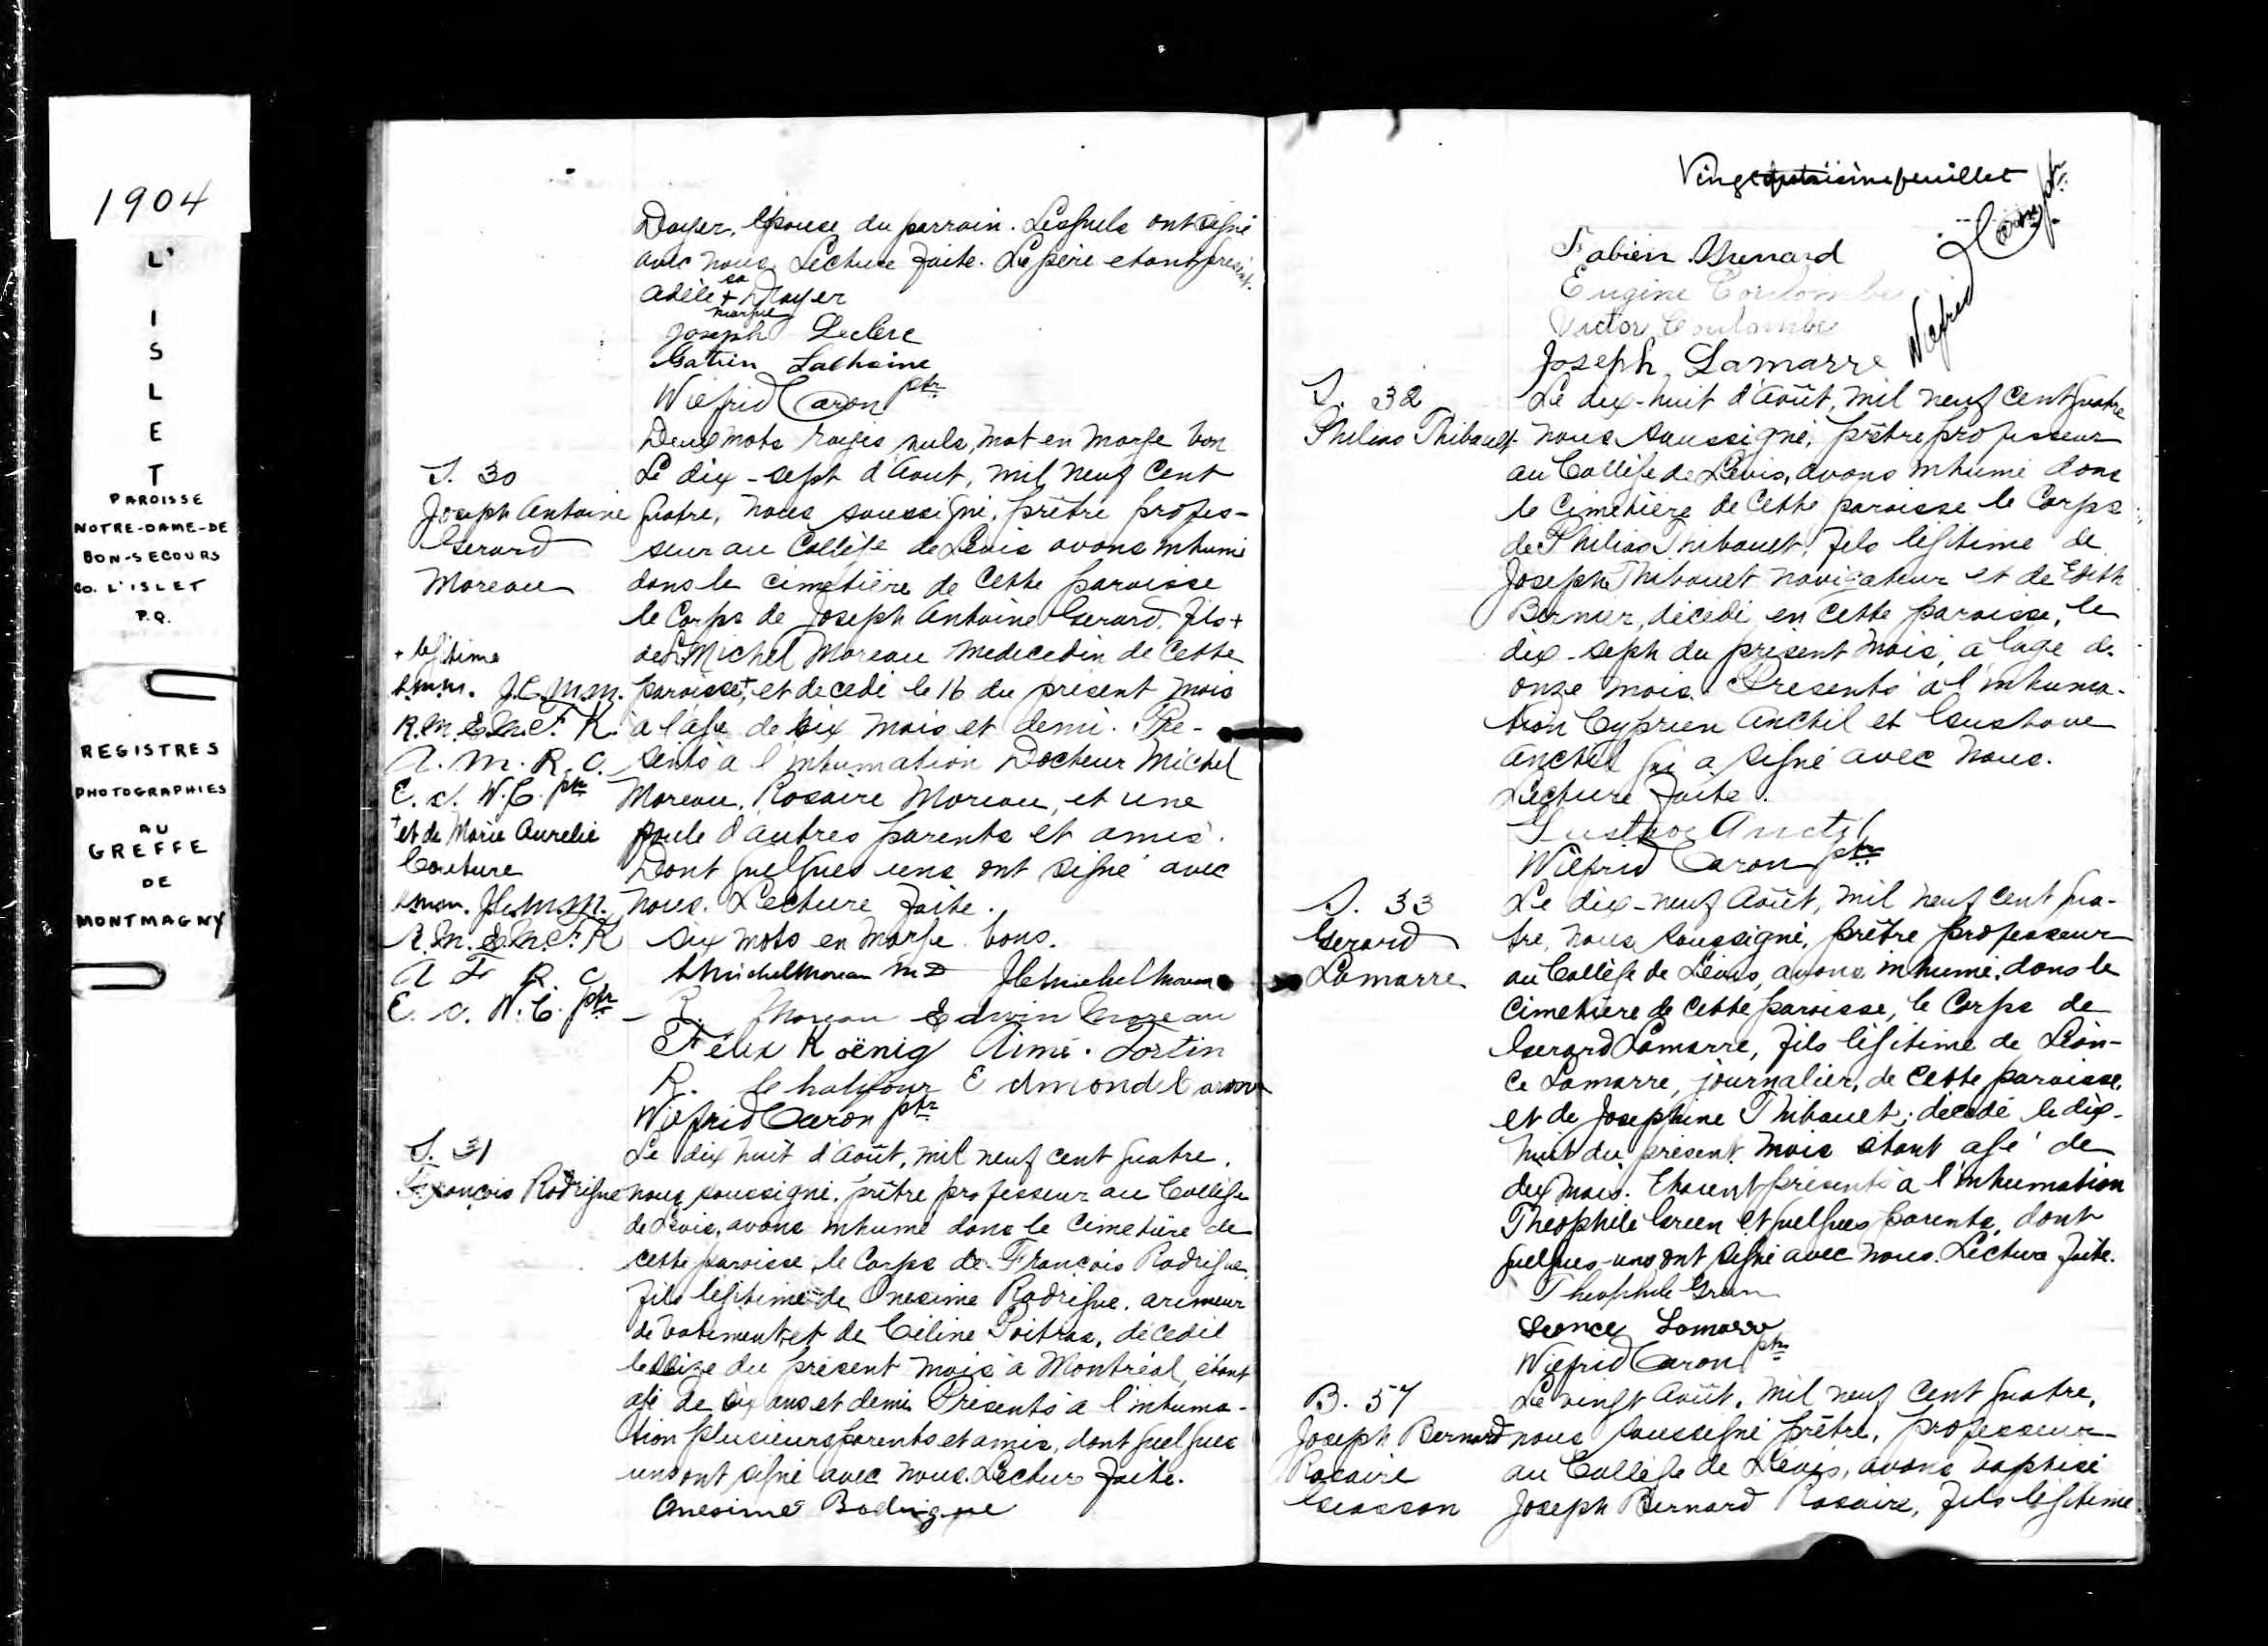 1904
L'
I
S
L
E
T
PAROISSE
NOTRE-DAME-DE
BON-SECOURS
CO. L'ISLET
P.Q.
REGISTRES
PHOTOGRAPHIES
AU
GREFFE
DE
MONTMAGNY
Doyer, épouse du parrain. Lesquels ont signé
avec nous. Lecture faite. Le père étant présent.
sa
Adèle + Doyer
marque
Joseph Leclerc
Wilfrid Caron ptr
Deux mots rayés nuls, mot en marge bon
S. 30
Joseph Antoine
Gerard
Moreau
Le dix-sept d'Aout, mil neuf cent
quatre, nous soussigné, prêtre profes-
seur au Collège de Lévis avons inhumé
dans le cimetière de cette paroisse
le Corps de Joseph Antoine Gerard, fils +
de Michel Moreau medecin de cette
paroisse +, et decedé le 16 du présent mois
à l'age de six mois et demi. Pré-
sents à l'inhumation Docteur Michel
Moreau, Rosaire Moreau, et une
foule d'autres parents et amis.
Dont quelques uns ont signé avec
nous. Lecture faite.
six mots en marge bons.
+ légitime
R.M. E.M. F. K.
A. M. R. C.
E. C. W. C. ptr
+ et de Marie Aurelie
Couture
R.M. E.M. F. K
A F R. C
E. C. W. C. ptr
R. Moreau Edwin Moreau
Félix Koënig Aimé Fortin
R. Edmond Caron
Wilfrid Caron ptr
S. 31
François Rodrigue
Le dix huit d'Août, mil neuf cent quatre,
nous soussigné, prêtre professeur au Collège
de Lévis, avons inhumé dans le cimetière de
cette paroisse, le Corps de François Rodrigue,
fils légitime de Onesime Rodrigue, arimeur
de batiment et de Céline Poitras, décédé
le seize du présent mois à Montréal, étant
agé de six ans et demi Présents à l'inhuma-
tion plusieurs parents et amis, dont quelques
uns ont signé avec nous. Lecture faite.
Onesime Rodrigue
Vingt feuillet
Wilfrid Caron ptr
Fabien Bernard
Eugène Coulombe
Victor Coulombe
Joseph Lamarre
S. 32
Philias Thibault
Le dix-huit d'Août, mil neuf cent quatre
nous soussigné, prêtre professeur
au Collège de Lévis, avons inhumé dans
le cimetière de cette paroisse le Corps
de Philias Thibault, fils légitime de
Joseph Thibault navigateur et de Edith
Bernier, décédé en cette paroisse, le
dix-sept du présent mois, à l'age de
onze mois. Présents à l'inhuma-
tion Cyprien Anctil et Gustave
Anctil qui a signé avec nous.
Lecture faite.
Gustave Anctil
Wilfrid Caron ptr
S. 33
Gerard
Lamarre
Le dix-neuf Août, mil neuf cent qua-
tre, nous soussigné, prêtre professeur
au Collège de Lévis, avons inhumé, dans le
cimetière de cette paroisse, le Corps de
Gerard Lamarre, fils légitime de Léon-
ce Lamarre, journalier, de cette paroisse,
et de Josephine Thibault; décédé le dix-
huit du présent mois étant agé de
dix mois. Etaient présents à l'inhumation
Théophile Green et quelques parents, dont
quelques-uns ont signé avec nous. Lecture faite.
Theophile Green
Leonce Lamarre
Wilfrid Caron ptr
B. 57
Joseph Bernard
Rosaire
Giasson
Le vingt Août, mil neuf cent quatre,
nous soussigné prêtre, professeur
au Collège de Lévis, avons baptisé
Joseph Bernard Rosaire, fils légitime